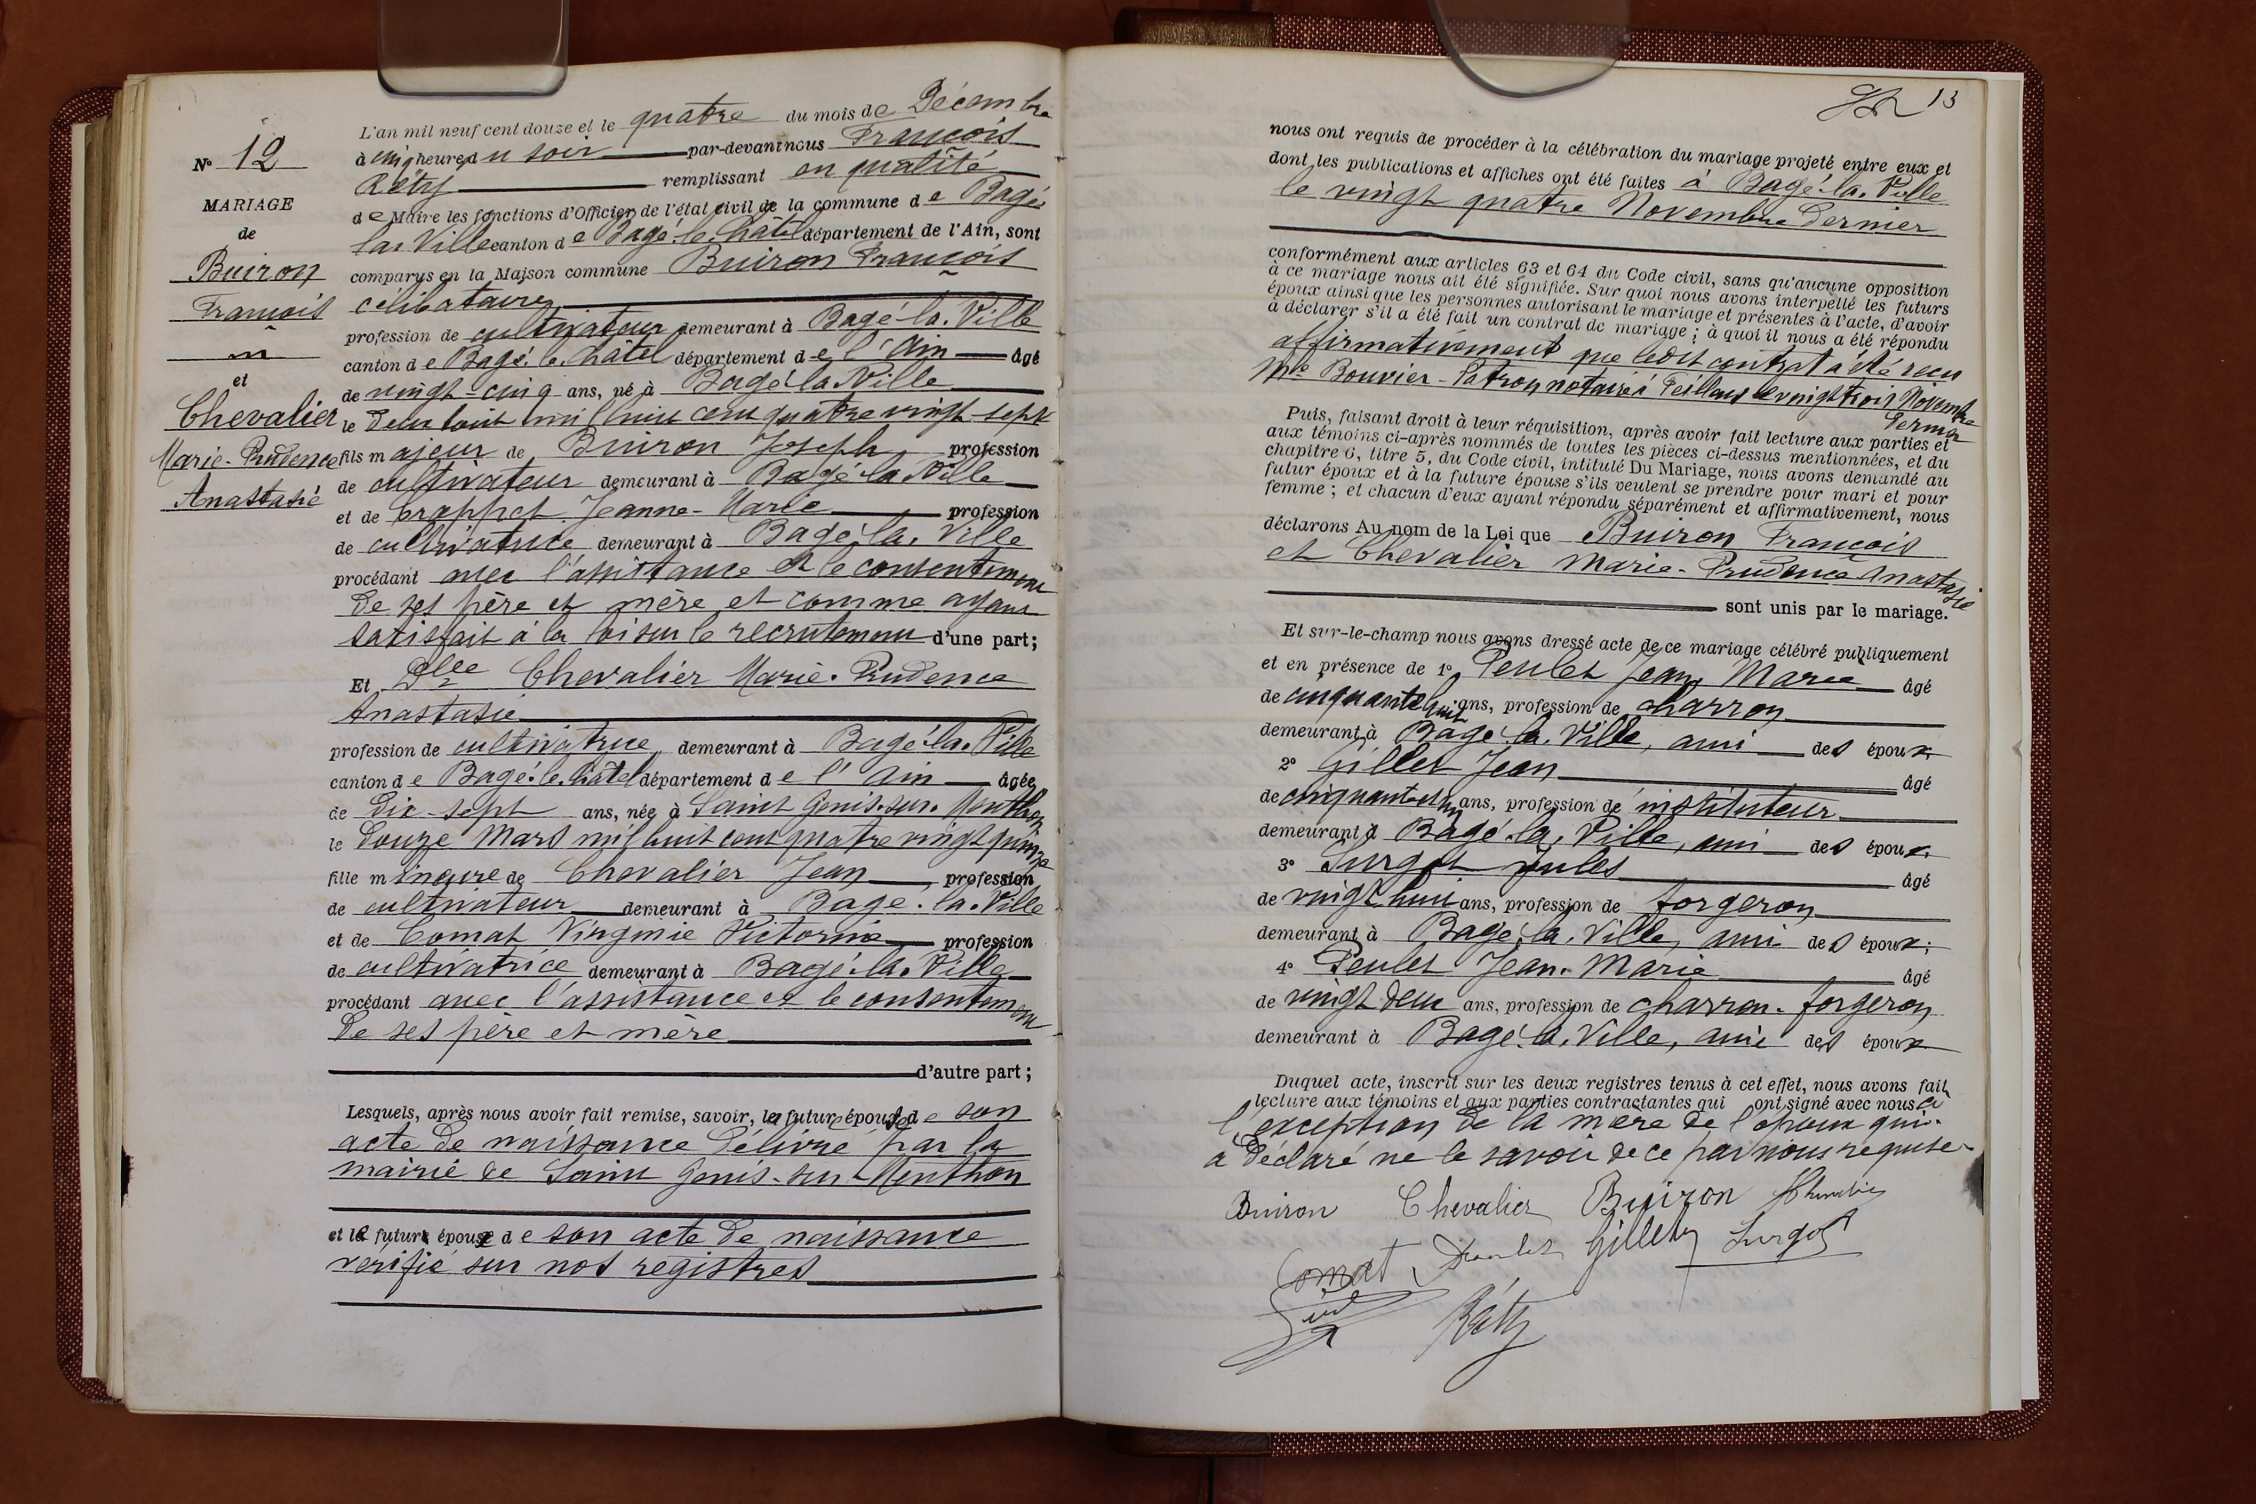 N° 12
MARIAGE
de
Buiron
François
et
Chevalier
Marie-Prudence
Anastasie
L'an mil neuf cent douze et le quatre du mois de Décembre
à cinq heures du soir par-devant nous François
Réty remplissant en qualité
de Maire les fonctions d'Officier de l'état civil de la commune de Bagé-
la-Ville canton de Bagé-le-Châtel département de l'Ain, sont
comparus en la Maison commune Buiron François
célibataire
profession de cultivateur demeurant à Bagé-la-Ville
canton de Bagé-le-Châtel département de l'Ain âgé
de vingt-cinq ans, né à Bagé-la-Ville
le deux août mil huit cent quatre vingt-sept
fils majeur de Buiron Joseph profession
de cultivateur demeurant à Bagé-la-Ville
et de Jeanne-Marie profession
de cultivatrice demeurant à Bagé-la-Ville
procédant avec l'assistance et le consentement
de ses père et mère et comme ayant
satisfait à la loi sur le recrutement d'une part;
Et Dlle Chevalier Marie-Prudence
Anastasie
profession de cultivatrice demeurant à Bagé-la-Ville
canton de Bagé-le-Châtel département de l'Ain âgée
de dix-sept ans, née à Saint Genis-sur-Menthon
le douze Mars mil huit cent quatre vingt quinze
fille mineure de Chevalier Jean profession
de cultivateur demeurant à Bagé-la-Ville
et de Comat Virginie Victorine profession
de cultivatrice demeurant à Bagé-la-Ville
procédant avec l'assistance et le consentement
de ses père et mère
d'autre part;
Lesquels, après nous avoir fait remise, savoir, la future épouse de son
acte de naissance délivré par la
mairie de Saint Genis-sur-Menthon
et le futur époux de son acte de naissance
vérifié sur nos registres
13
nous ont requis de procéder à la célébration du mariage projeté entre eux et
dont les publications et affiches ont été faites à Bagé-la-Ville
le vingt quatre Novembre dernier
conformément aux articles 63 et 64 du Code civil, sans qu'aucune opposition
à ce mariage nous ait été signifiée. Sur quoi nous avons interpellé les futurs
époux ainsi que les personnes autorisant le mariage et présentes à l'acte, d'avoir
à déclarer s'il a été fait un contrat de mariage; à quoi il nous a été répondu
affirmativement que ledit contrat a été reçu
Me Bouvier-Patron notaire à Feillens le vingt trois Novembre
dernier
Puis, faisant droit à leur réquisition, après avoir fait lecture aux parties et
aux témoins ci-après nommés de toutes les pièces ci-dessus mentionnées, et du
chapitre 6, titre 5, du Code civil, intitulé Du Mariage, nous avons demandé au
futur époux et à la future épouse s'ils veulent se prendre pour mari et pour
femme; et chacun d'eux ayant répondu séparément et affirmativement, nous
déclarons Au nom de la Loi que Buiron François
et Chevalier Marie-Prudence Anastasie
sont unis par le mariage.
Et sur-le-champ nous avons dressé acte de ce mariage célébré publiquement
et en présence de 1° Peulet Jean Marie âgé
de cinquante huit ans, profession de charron
demeurant à Bagé-la-Ville, ami des époux
2° Gillet Jean âgé
de cinquante et un ans, profession de instituteur
demeurant à Bagé-la-Ville, ami des époux
3° Surgot Jules âgé
de vingt huit ans, profession de forgeron
demeurant à Bagé-la-Ville, ami des époux;
4° Peulet Jean-Marie âgé
de vingt deux ans, profession de charron-forgeron
demeurant à Bagé-la-Ville, ami des époux
Duquel acte, inscrit sur les deux registres tenus à cet effet, nous avons fait
lecture aux témoins et aux parties contractantes qui ont signé avec nous à
l'exception de la mère de l'époux qui
a déclaré ne le savoir de ce par nous requise
Buiron Chevalier Buiron Chevalier
Comat Peulet Gillet Surgot
Réty